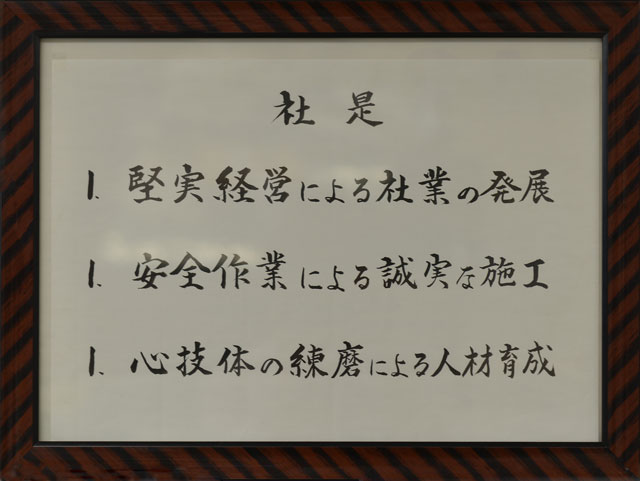 社是
1. 堅実経営による社業の発展
1. 安全作業による誠実な施工
1. 心技体の練磨による人材育成